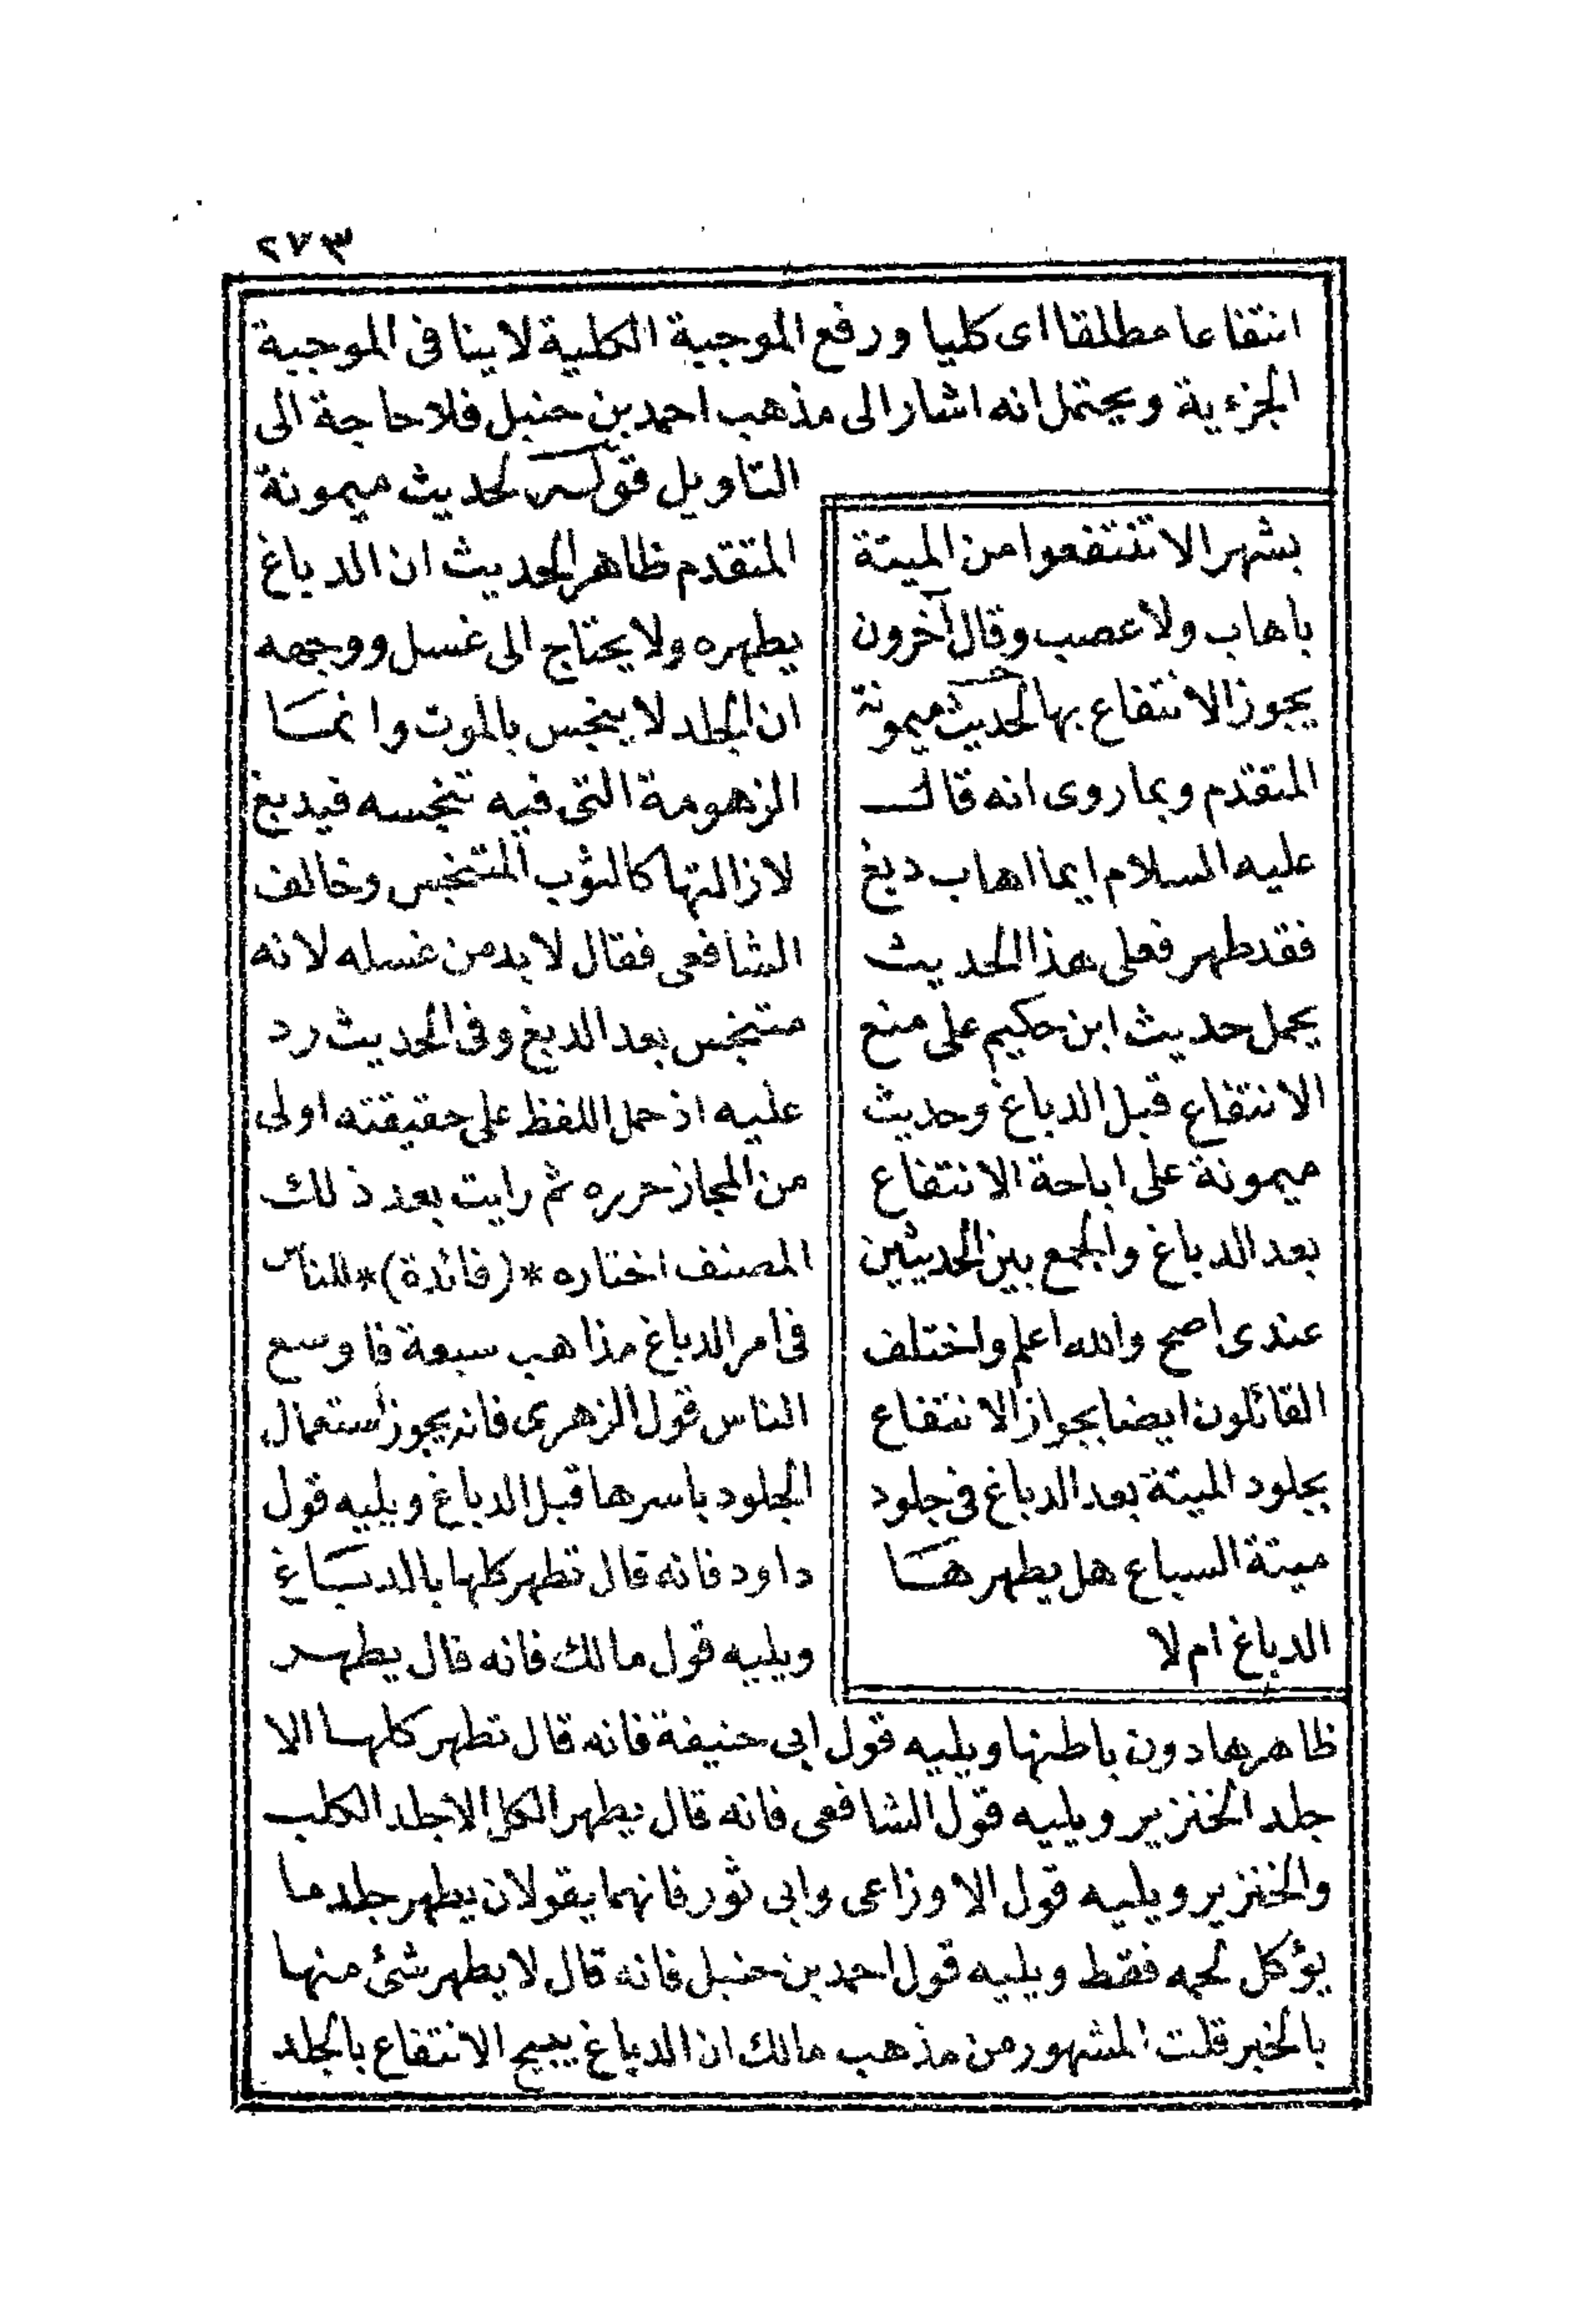 ٢٧٣
انتفاعا مطلقا اى كليا ورفع الموجبة الكلية لا ينافى الموجبة
الجزءية ويحتمل انه اشار الى مذهب احمد بن حنبل فلا حاجة الى
التاويل قوله لحديث ميمونة
المتقدم ظاهر الحديث ان الدباغ
يطهره ولا يحتاج الى غسل ووجهه
ان الجلد لا ينجس بالموت وانما
الزهومة التى فيه تنجسه فيدبغ
لازالتها كالثوب المتنجس وخالف
الشافعى فقال لا بد من غسله لانه
متنجس بعد الدبغ وفى الحديث رد
عليه اذ حمل اللفظ على حقيقته اولى
من المجاز حرره ثم رايت بعد ذلك
المصنف اختاره *(فائدة)* للناس
فى امر الدباغ مذاهب سبعة فاوسع
الناس قول الزهرى فانه يجوز أستعمال
الجلود باسرها قبل الدباغ ويليه قول
داود فانه قال تطهر كلها بالدباغ
ويليه قول مالك فانه قال يطهر
ظاهرها دون باطنها ويليه قول ابى حنيفة فانه قال تطهر كلها الا
جلد الخنزير ويليه قول الشافعى فانه قال يطهر الكل الا جلد الكلب
والخنزير ويليه قول الاوزاعى وابى ثور فانهما يقولان يطهر جلد ما
يؤكل لحمه فقط ويليه قول احمد بن حنبل فانه قال لا يطهر شئ منها
بالخبر قلت المشهور من مذهب مالك ان الدباغ يبيح الانتفاع بالجلد
بشهر الا تنتفعوا من الميتة
باهاب ولا عصب وقال آخرون
يجوز الانتفاع بها لحديث ميمونة
المتقدم وبما روى انه قال
عليه السلام ايما اهاب دبغ
فقد طهر فعلى هذا الحديث
يحمل حديث ابن حكيم على منع
الانتفاع قبل الدباغ وحديث
ميمونة على اباحة الانتفاع
بعد الدباغ والجمع بين الحديثين
عندى اصح والله اعلم واختلف
القائلون ايضا بجواز الانتفاع
بجلود الميتة بعد الدباغ فى جلود
ميتة السباع هل يطهرها
الدباغ ام لا